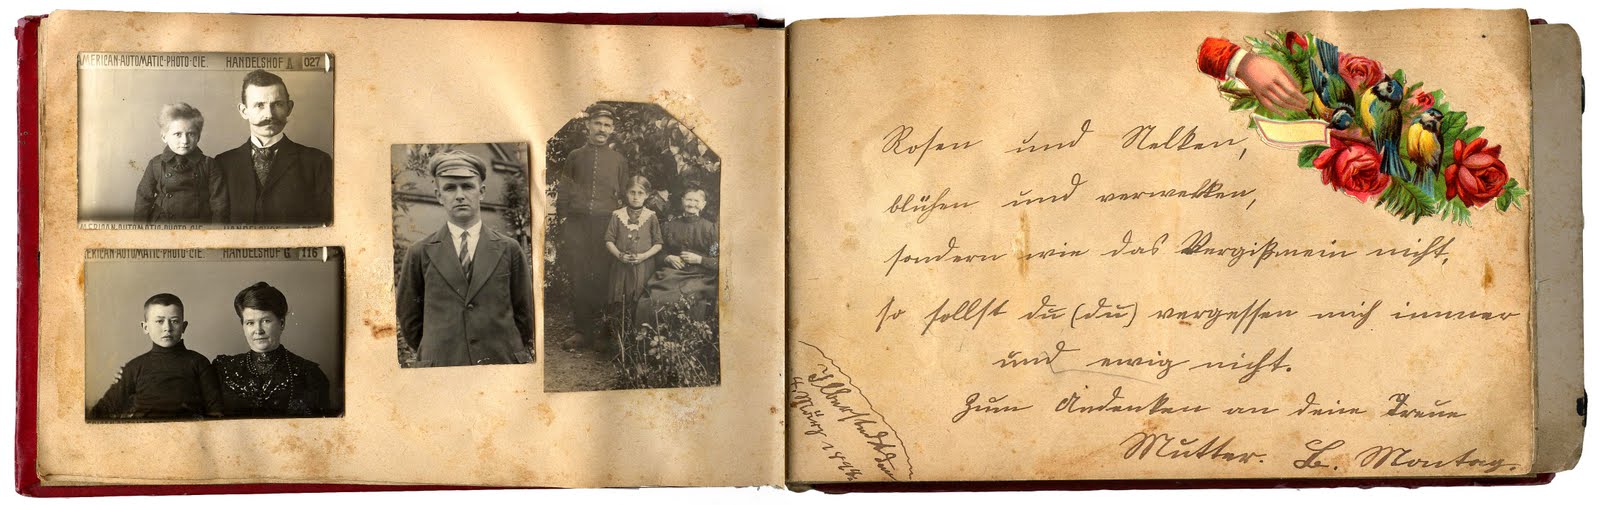 MERICAN·AUTOMATIC·PHOTO·CIE. HANDELSHOF A 027
ERICAN·AUTOMATIC·PHOTO·CIE. HANDELSHOF G 116
Rosen und Nelken,
blühen und verwelken,
sondern wie das Vergißmein nicht,
so sollst du (du) vergessen mich immer
und ewig nicht.
Zum Andenken an deine Treue
Mutter. B. Montag.
Halberstadt den
4. März